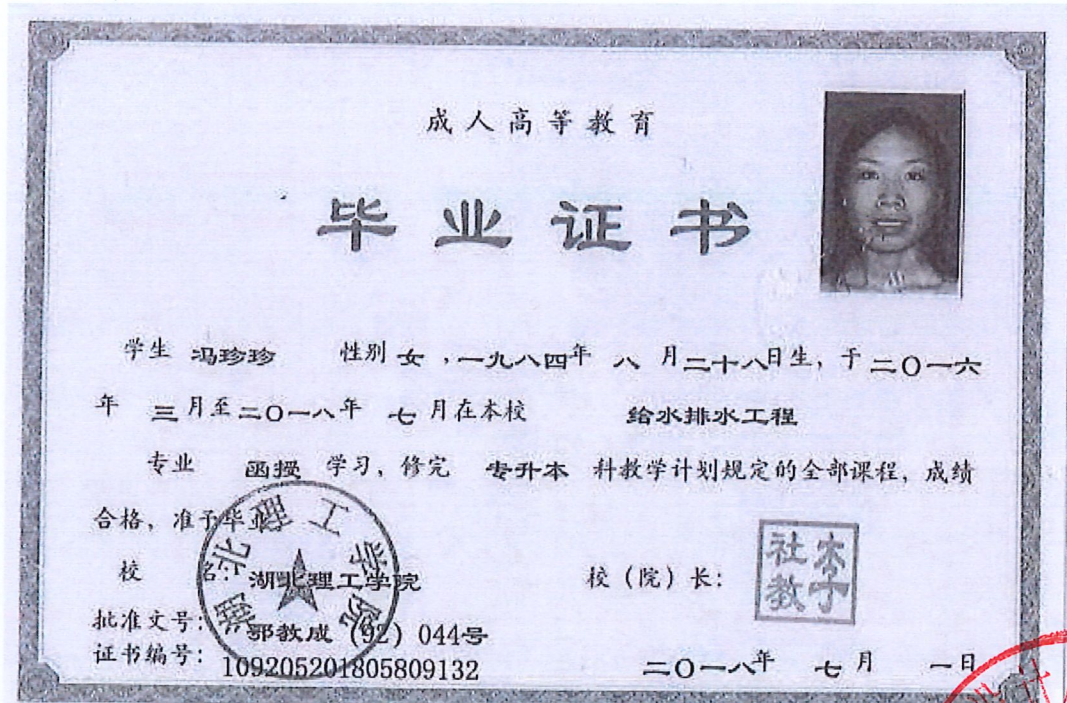 成人高等教育
毕业证书
学生 冯珍珍 性别 女，一九八四年 八 月二十八日生，于二〇一六
年 三月至二〇一八年 七月在本校 给水排水工程
专业 函授 学习，修完 专升本 科教学计划规定的全部课程，成绩
合格，准予毕业。
校 名：湖北理工学院
校（院）长：
李社教
批准文号：鄂教成（92）044号
证书编号：109205201805809132
二〇一八年 七月 一日
湖北理工学院